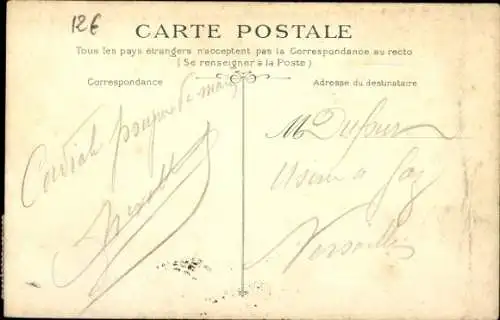 12€
CARTE POSTALE
Tous les pays étrangers n'acceptent pas la Correspondance au recto
(Se renseigner à la Poste)
Correspondance
Adresse du destinataire
Cordial
M Dufour
Usine a Gaz
Versailles